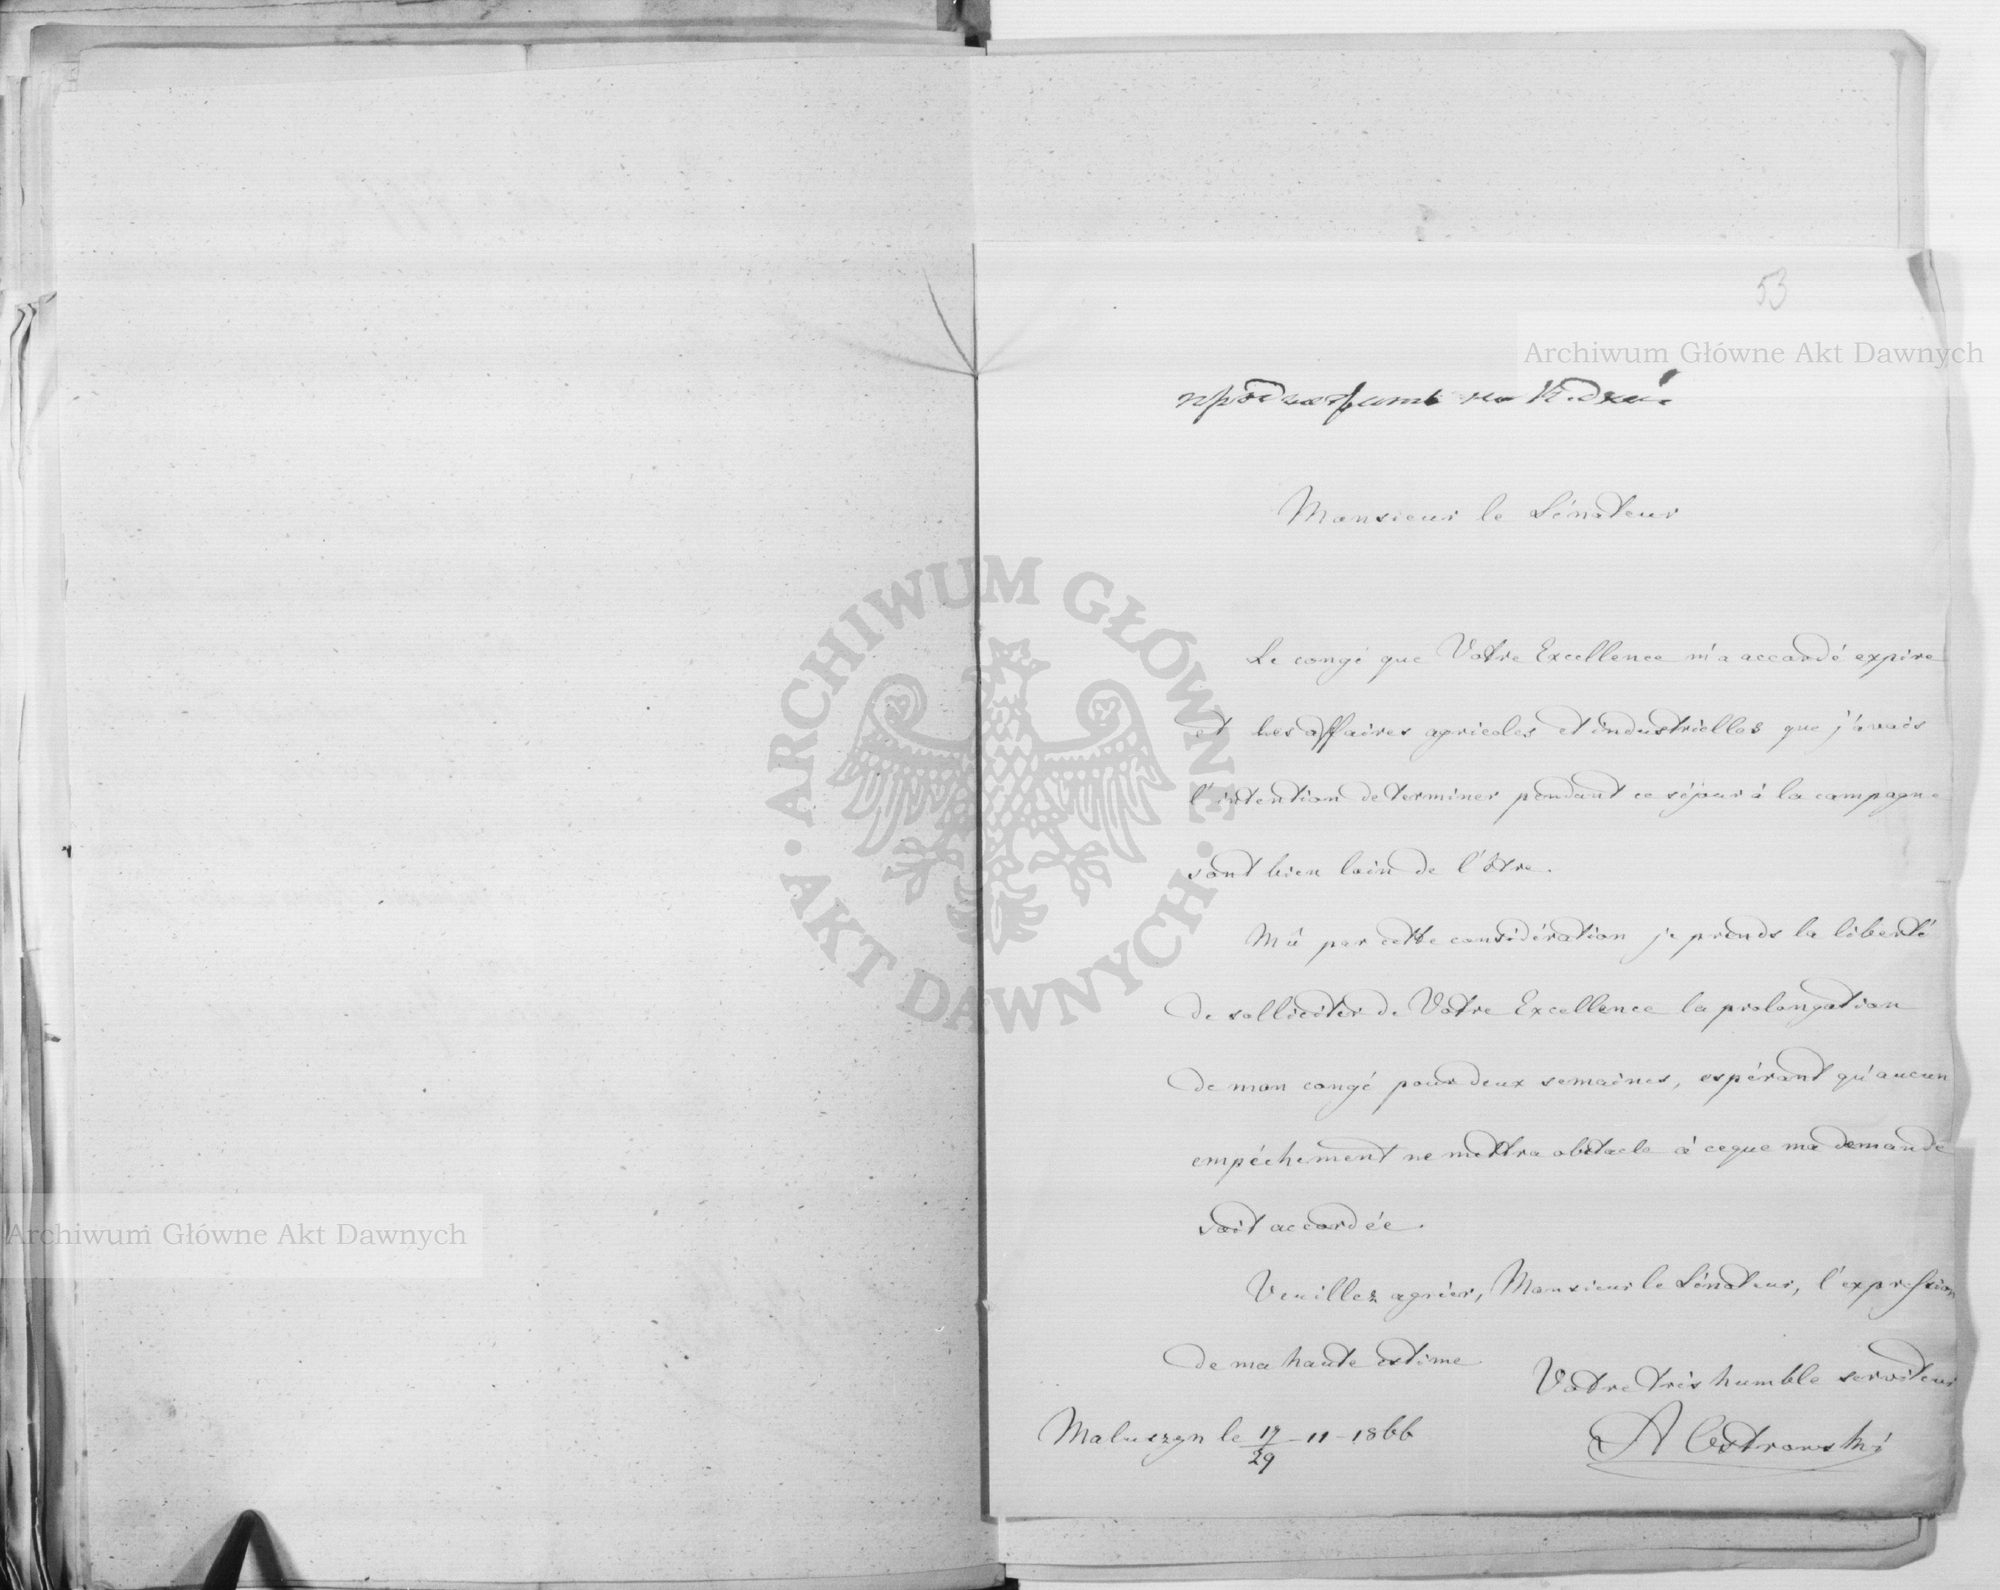 53
Archiwum Główne Akt Dawnych
на
Monsieur le Sénateur
Le congé que Votre Excellence m'a accordé expire
et les affaires agricoles et industrielles que j'avais
l'intention de terminer pendant ce séjour à la campagne
sont bien loin de l'être.
Mû par cette considération je prends la liberté
de solliciter de Votre Excellence la prolongation
de mon congé pour deux semaines, espérant qu'aucun
empéchement ne mettra obstacle à ce que ma demande
soit accordée.
Veuillez agréer, Monsieur le Sénateur, l'expression
de ma haute estime
Votre très humble serviteur
Maluszyn le 17/29 - 11 - 1866
A Ostrowski
ARCHIWUM GŁÓWNE · AKT DAWNYCH ·
Archiwum Główne Akt Dawnych